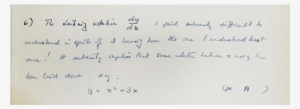 6) The Leibniz notation dy/dx I found extremely difficult to
understand in spite of I having been the one I understood best
one! It certainly implies that some relation between x and y has
been laid down e.g.
y = x² + 3x